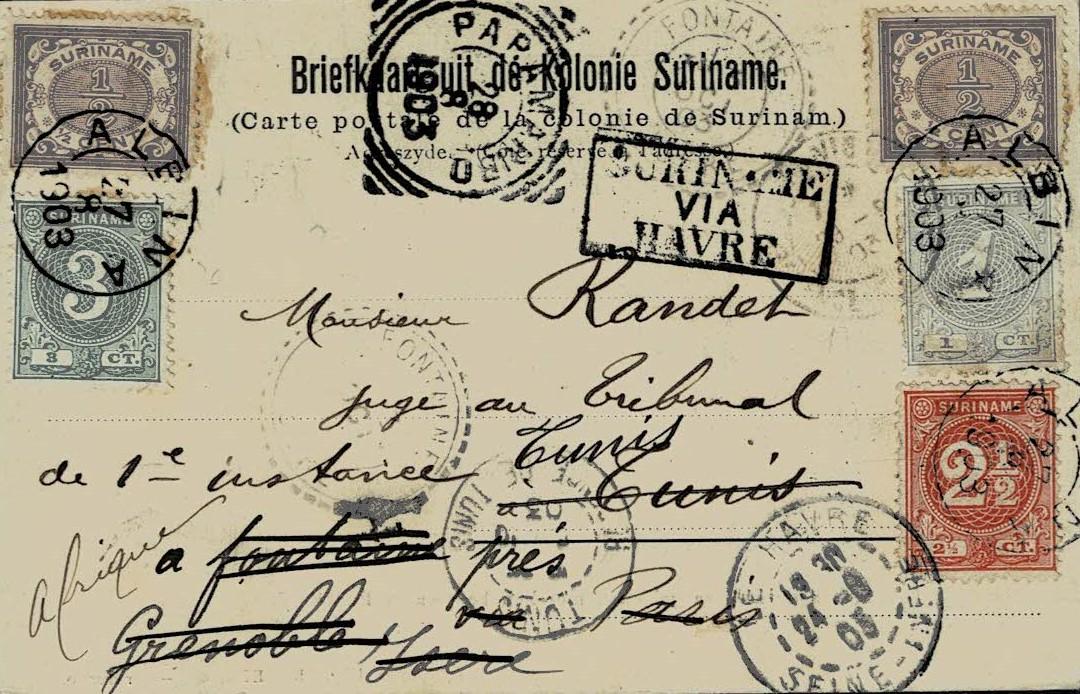 Briefkaart uit de Kolonie Suriname.
(Carte postale de la colonie de Surinam.)
SURINAME
1/2
1/2 CENT
SURINAME
1/2
CENT
ALBINA
27
8
1903
PARAMARIBO
28
8
1903
FONTAINE
SURINAME
VIA
HAVRE
ALBINA
27
1903
SURINAME
3
3 CT.
SURINAME
1
1 CT.
Monsieur Randet
FONTAINE
juge au Tribunal
SURINAME
2 1/2
2 1/2 CT.
Tunis
de 1e instance à Tunis
TUNIS
TUNIS
Afrique
a fontaine près
LE HAVRE
18 30
24 -9
03
SEINE-INFRE
Grenoble Isère via Paris